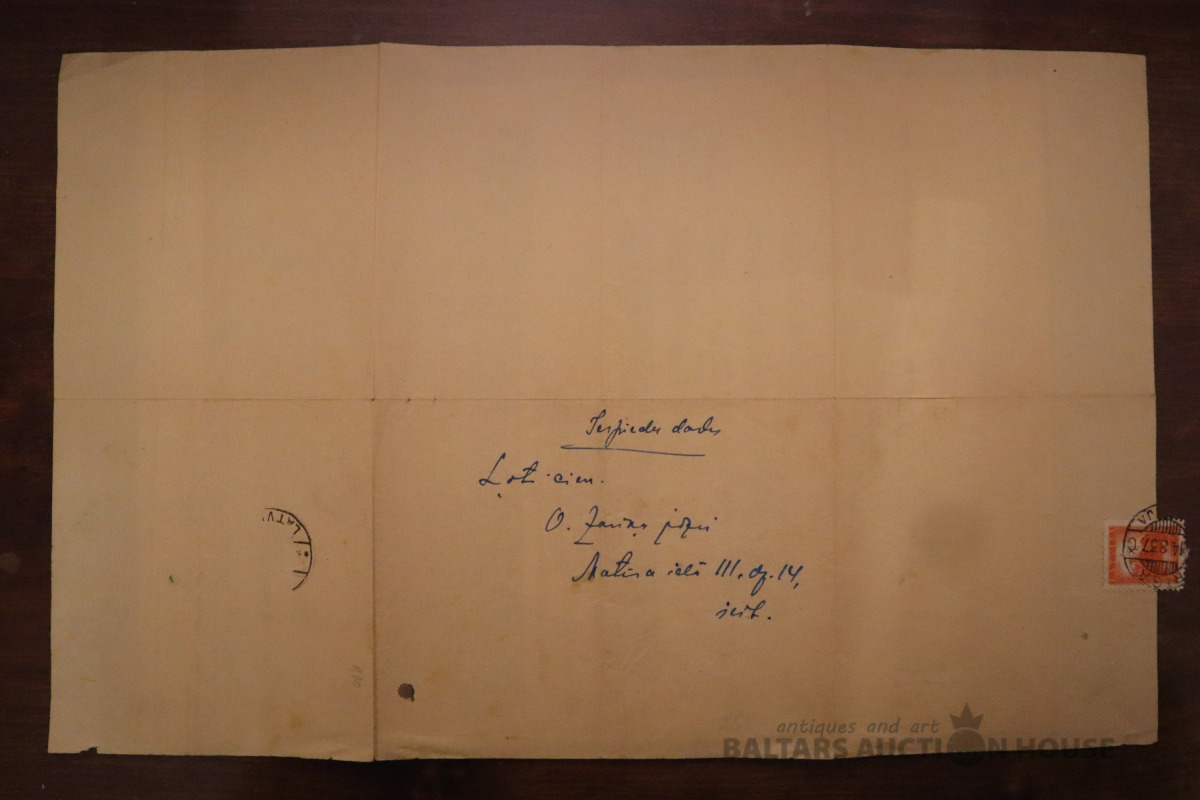 Iespieda darbs
Ļoti cien.
O. Zariņa jkdzei
Matīsa ielā 111, dz. 14,
šeit.
LATV
JA
4.8.37
antiques and art
BALTARS AUCTION HOUSE